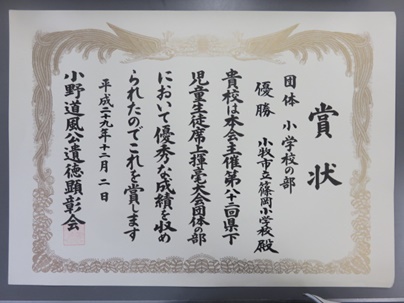 賞状
団体 小学校の部
優勝 小牧市立篠岡小学校殿
貴校は本会主催第八十二回県下
児童生徒席上揮毫大会団体の部
において優秀な成績を収め
られたのでこれを賞します
平成二十九年十二月二日
小野道風公遺徳顕彰会